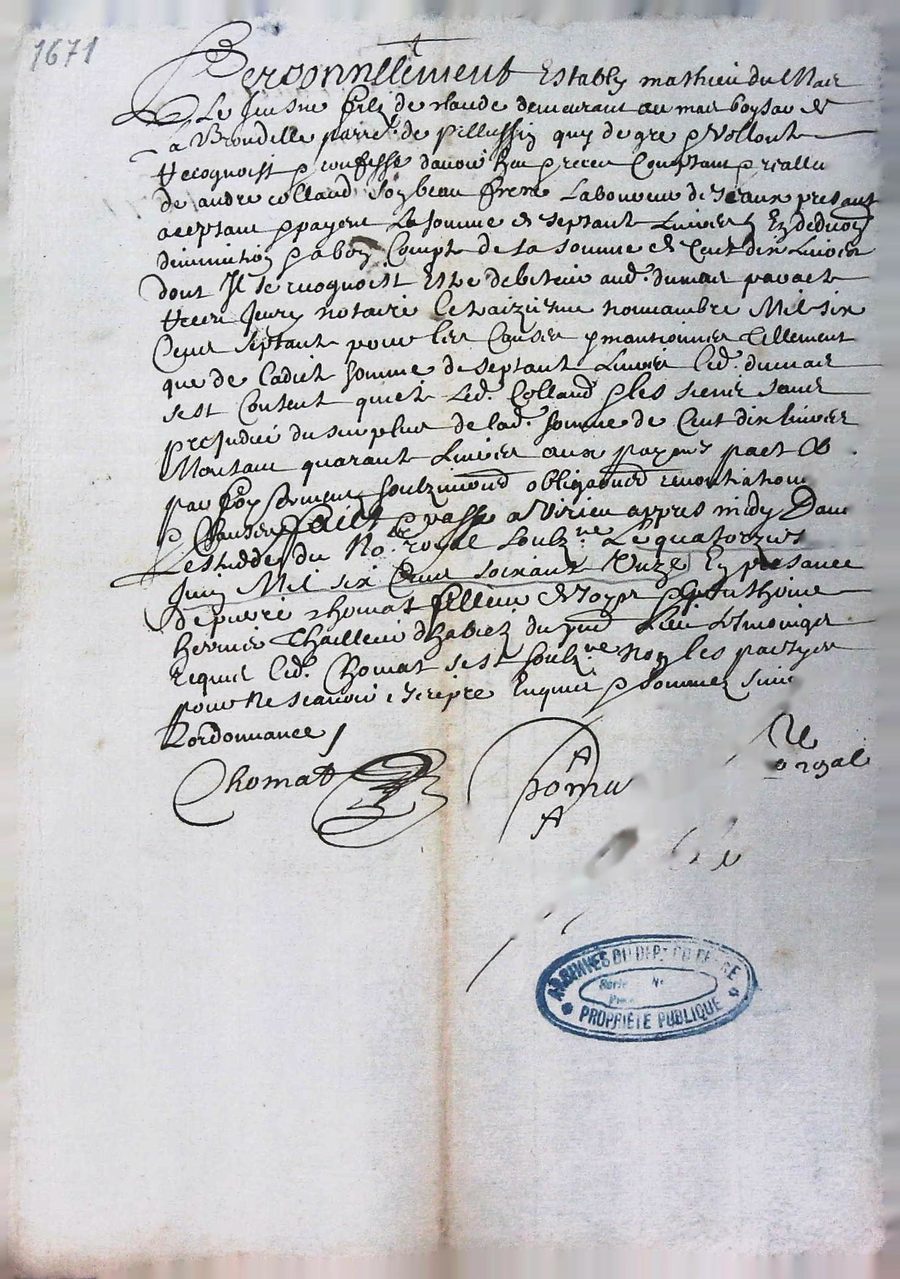 1671
Personnellement Estably mathieu du Mas
Le Jeusne filz de claude demeurant au mas boysac &
parre. de pellussin quy de gre & Vollonte
Recognoist & confesse davoir heu & receu Comptant & reallem
de andre colland Soy beau frere Laboureur de presant
aceptant & payent La somme de septant Livres En deduon
diminution & a boy Compte de la somme de Cent dix Livres
dont Il se recognoist Estre debiteur aud. dumas par act
Receu Jeury notaire Le traizieme nouambre Mil six
Cens septant pour les Causes y mantionnes Tellement
que de Ladict somme de septant Livres Led. dumas
se est Content quict Led. Colland & les siens sans
prejudice du surplus de lad. somme de Cent dix Livres
Montant quarant Livres aux payems pact &
par foy serment soubzmond obligaond renontiation
& Clauses faict & passe a Virieu appres midy Dans
Lestudde du No.re royal soubz.ne Le quatorzies
Juin Mil six Cens soixant Unze En presance
de pierre chomat & Anthoine
Tailleur dhabiez du pnt Lieu tesmoings
Requis Led. Chomat sest soubz.ne Non les partyes
pour Ne scavoir escripre Enquis & sommez suiv
Lordonnance /
Chomat
royal
ARCHIVES DU DEPT DU RHONE
Serie No
PROPRIETE PUBLIQUE